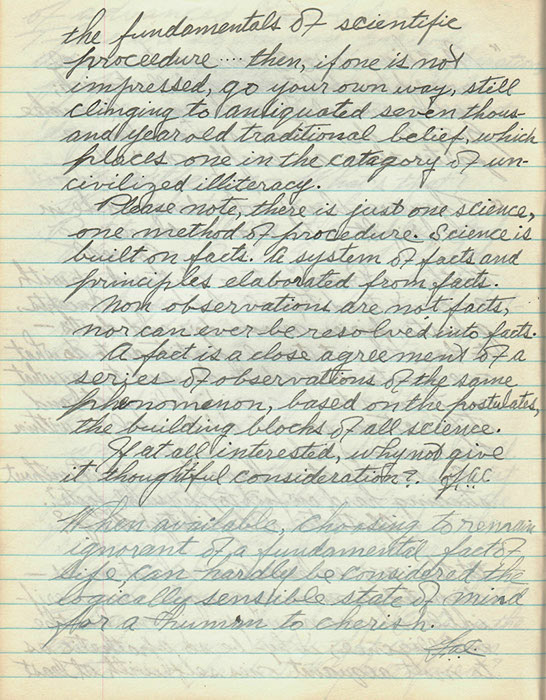 the fundamentals of scientific
proceedure .... then, if one is not
impressed, go your own way, still
clinging to antiquated seven thous-
and year old traditional belief, which
places one in the catagory of un-
civilized illiteracy.
Please note, there is just one science,
one method of procedure. Science is
built on facts. A system of facts and
principles elaborated from facts.
Non observations are not facts,
nor can ever be resolved into facts.
A fact is a close agreement of a
series of observations of the same
phenomenon, based on the postulates,
the building blocks of all science.
If at all interested, why not give
it thoughtful consideration?
When available, choosing to remain
ignorant of a fundamental fact of
life, can hardly be considered the
logically sensible state of mind
for a human to cherish.